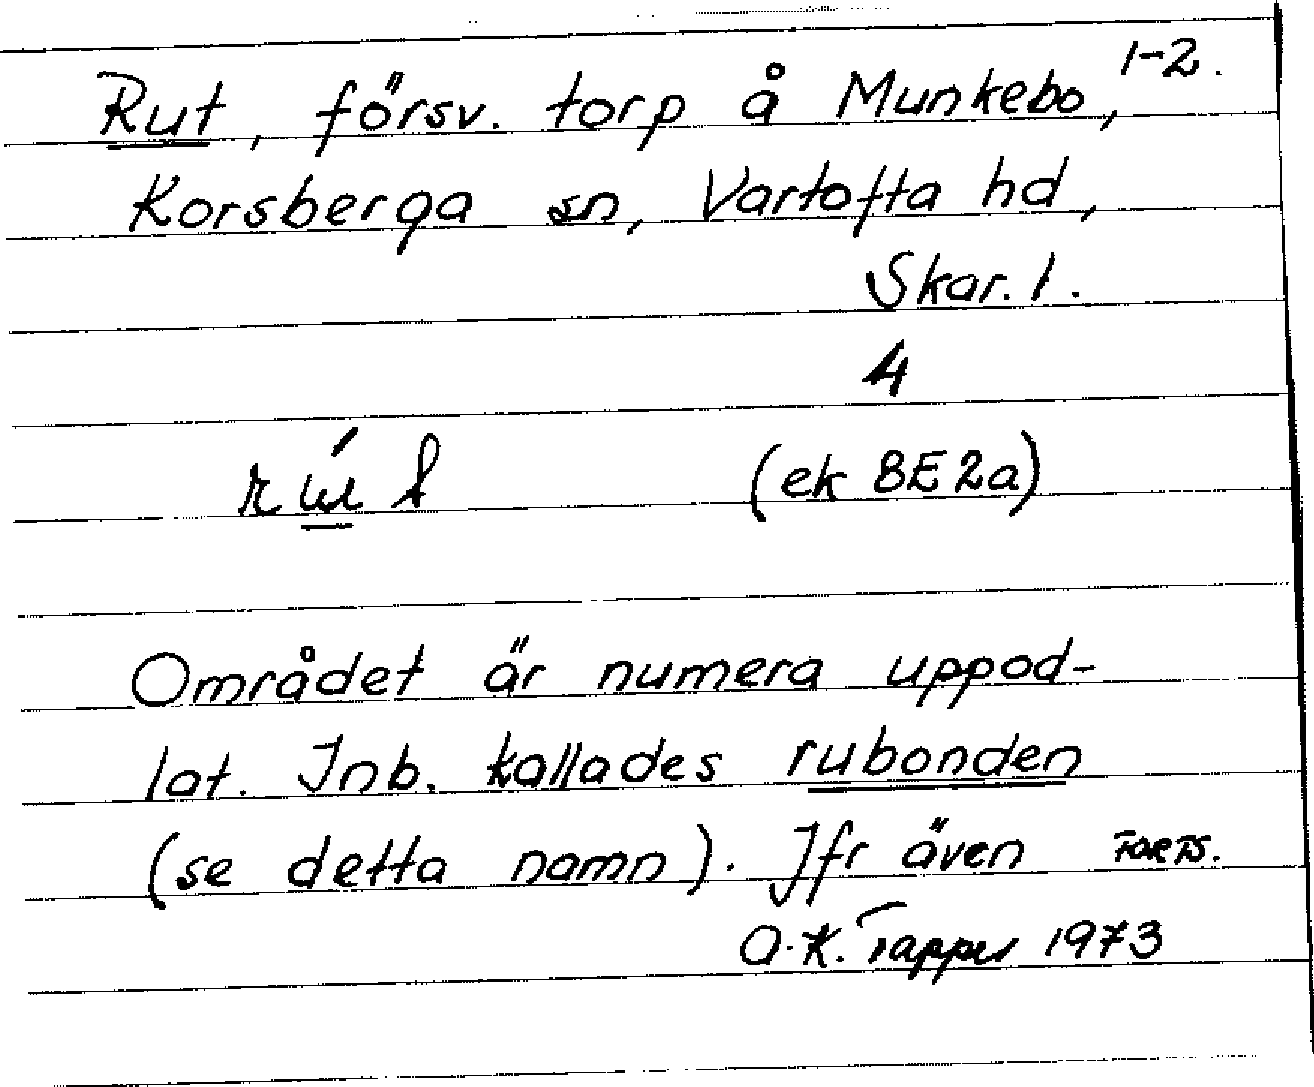 Rut, försv. torp å Munkebo, 1-2.
Korsberga sn, Vartofta hd,
Skar. l.
4
(ek 8E2a)
Området är numera uppod-
lat. Inb. kallades rubonden
(se detta namn). Jfr även FORTS.
O.K. Tapper 1973